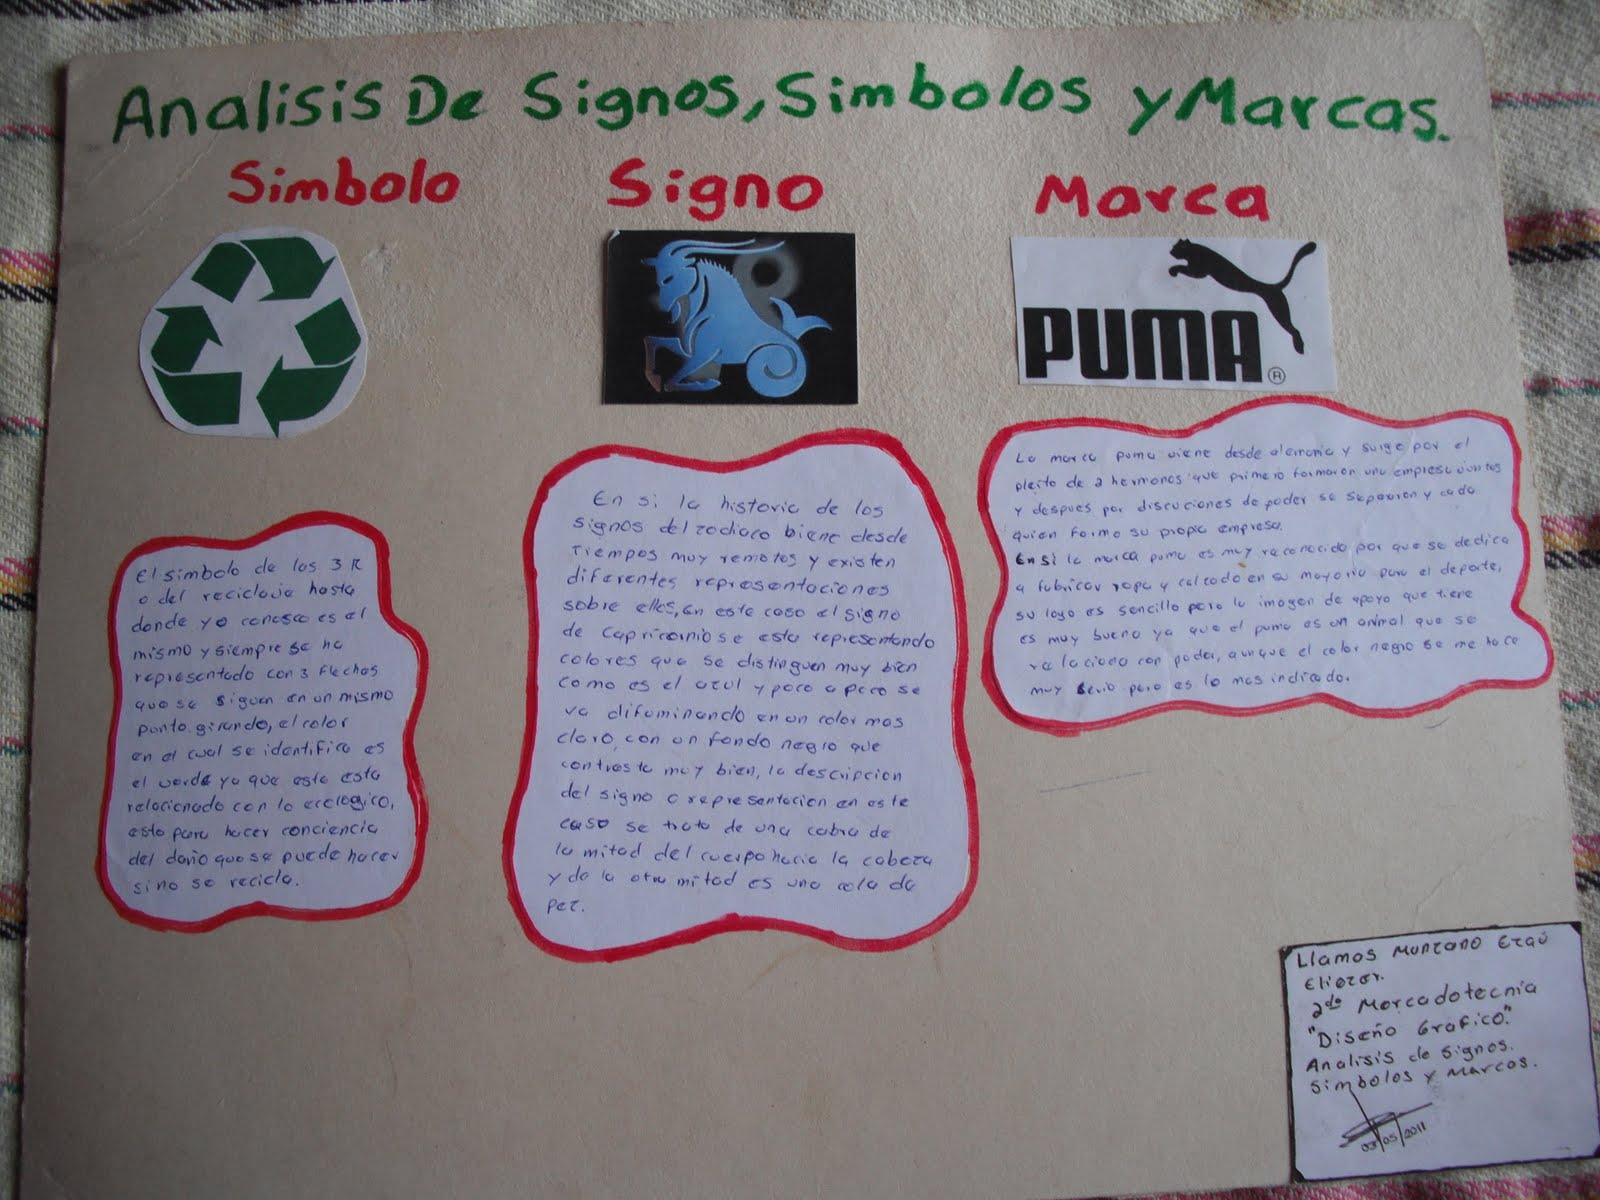 Analisis De Signos, Simbolos y Marcas.
Simbolo
Signo
Marca
PUMA®
El simbolo de las 3 R
o del reciclaje hasta
donde yo conosco es el
mismo y siempre se ha
representado con 3 flechas
que se siguen en un mismo
punto girando, el color
en el cual se identifica es
el verde ya que este esta
relacionado con lo ecologico,
esto para hacer conciencia
del daño que se puede hacer
si no se recicla.
En si la historia de los
signos del zodiaco biene desde
tiempos muy remotos y existen
diferentes representaciones
sobre elles, en este caso el signo
de capricornio se esta representando
colores que se distinguen muy bien
como es el azul y poco a poco se
va difuminando en un color mas
claro, con un fondo negro que
contrasta muy bien, la descripcion
del signo o representacion en este
caso se trata de una cabra de
la mitad del cuerpo hacia la cabeza
y de la otra mitad es una cola de
pez.
La marca puma viene desde alemania y surge por el
pleito de 2 hermanos que primero formaron una empresa juntos
y despues por discuciones de poder se separaron y cada
quien formo su propia empresa.
En si la marca puma es muy reconocida por que se dedica
a fabricar ropa y calzado en su mayoria para el deporte,
su logo es sencillo pero la imagen de apoyo que tiene
es muy bueno ya que el puma es un animal que se
relaciona con poder, aunque el color negro se me hace
muy serio pero es lo mas indicado.
Llamos Manzano Ezaú
Eliezer.
2do Mercadotecnia
"Diseño Grafico."
Analisis de Signos.
Simbolos y Marcas.
03/05/2011